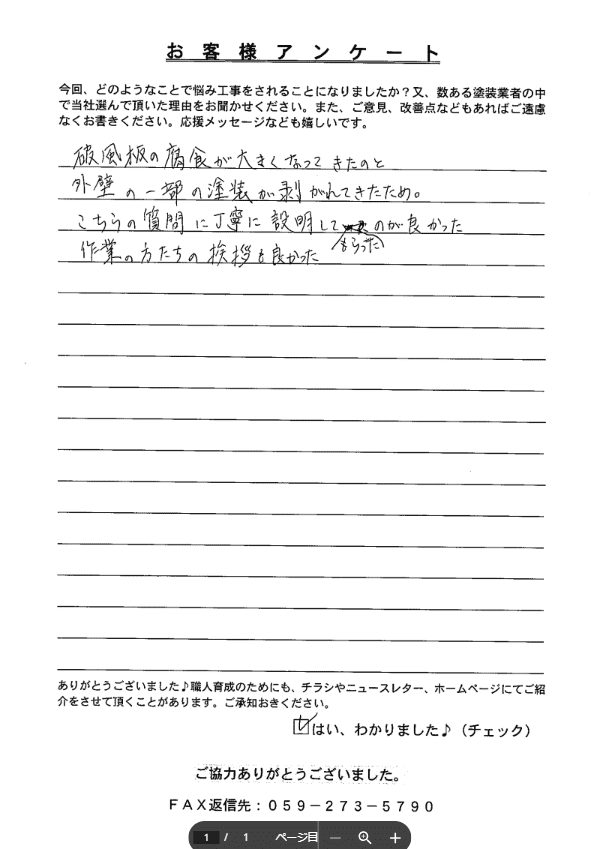 お客様アンケート
今回、どのようなことで悩み工事をされることになりましたか？又、数ある塗装業者の中
で当社選んで頂いた理由をお聞かせください。また、ご意見、改善点などもあればご遠慮
なくお書きください。応援メッセージなども嬉しいです。
破風板の腐食が大きくなってきたのと
外壁の一部の塗装が剥がれてきたため。
こちらの質問に丁寧に説明してのが良かった
もらった
作業の方たちの挨拶も良かった
ありがとうございました♪職人育成のためにも、チラシやニュースレター、ホームページにてご紹
介をさせて頂くことがあります。ご承知おきください。
はい、わかりました♪（チェック）
ご協力ありがとうございました。
ＦＡＸ返信先：０５９－２７３－５７９０
1 / 1 ページ目